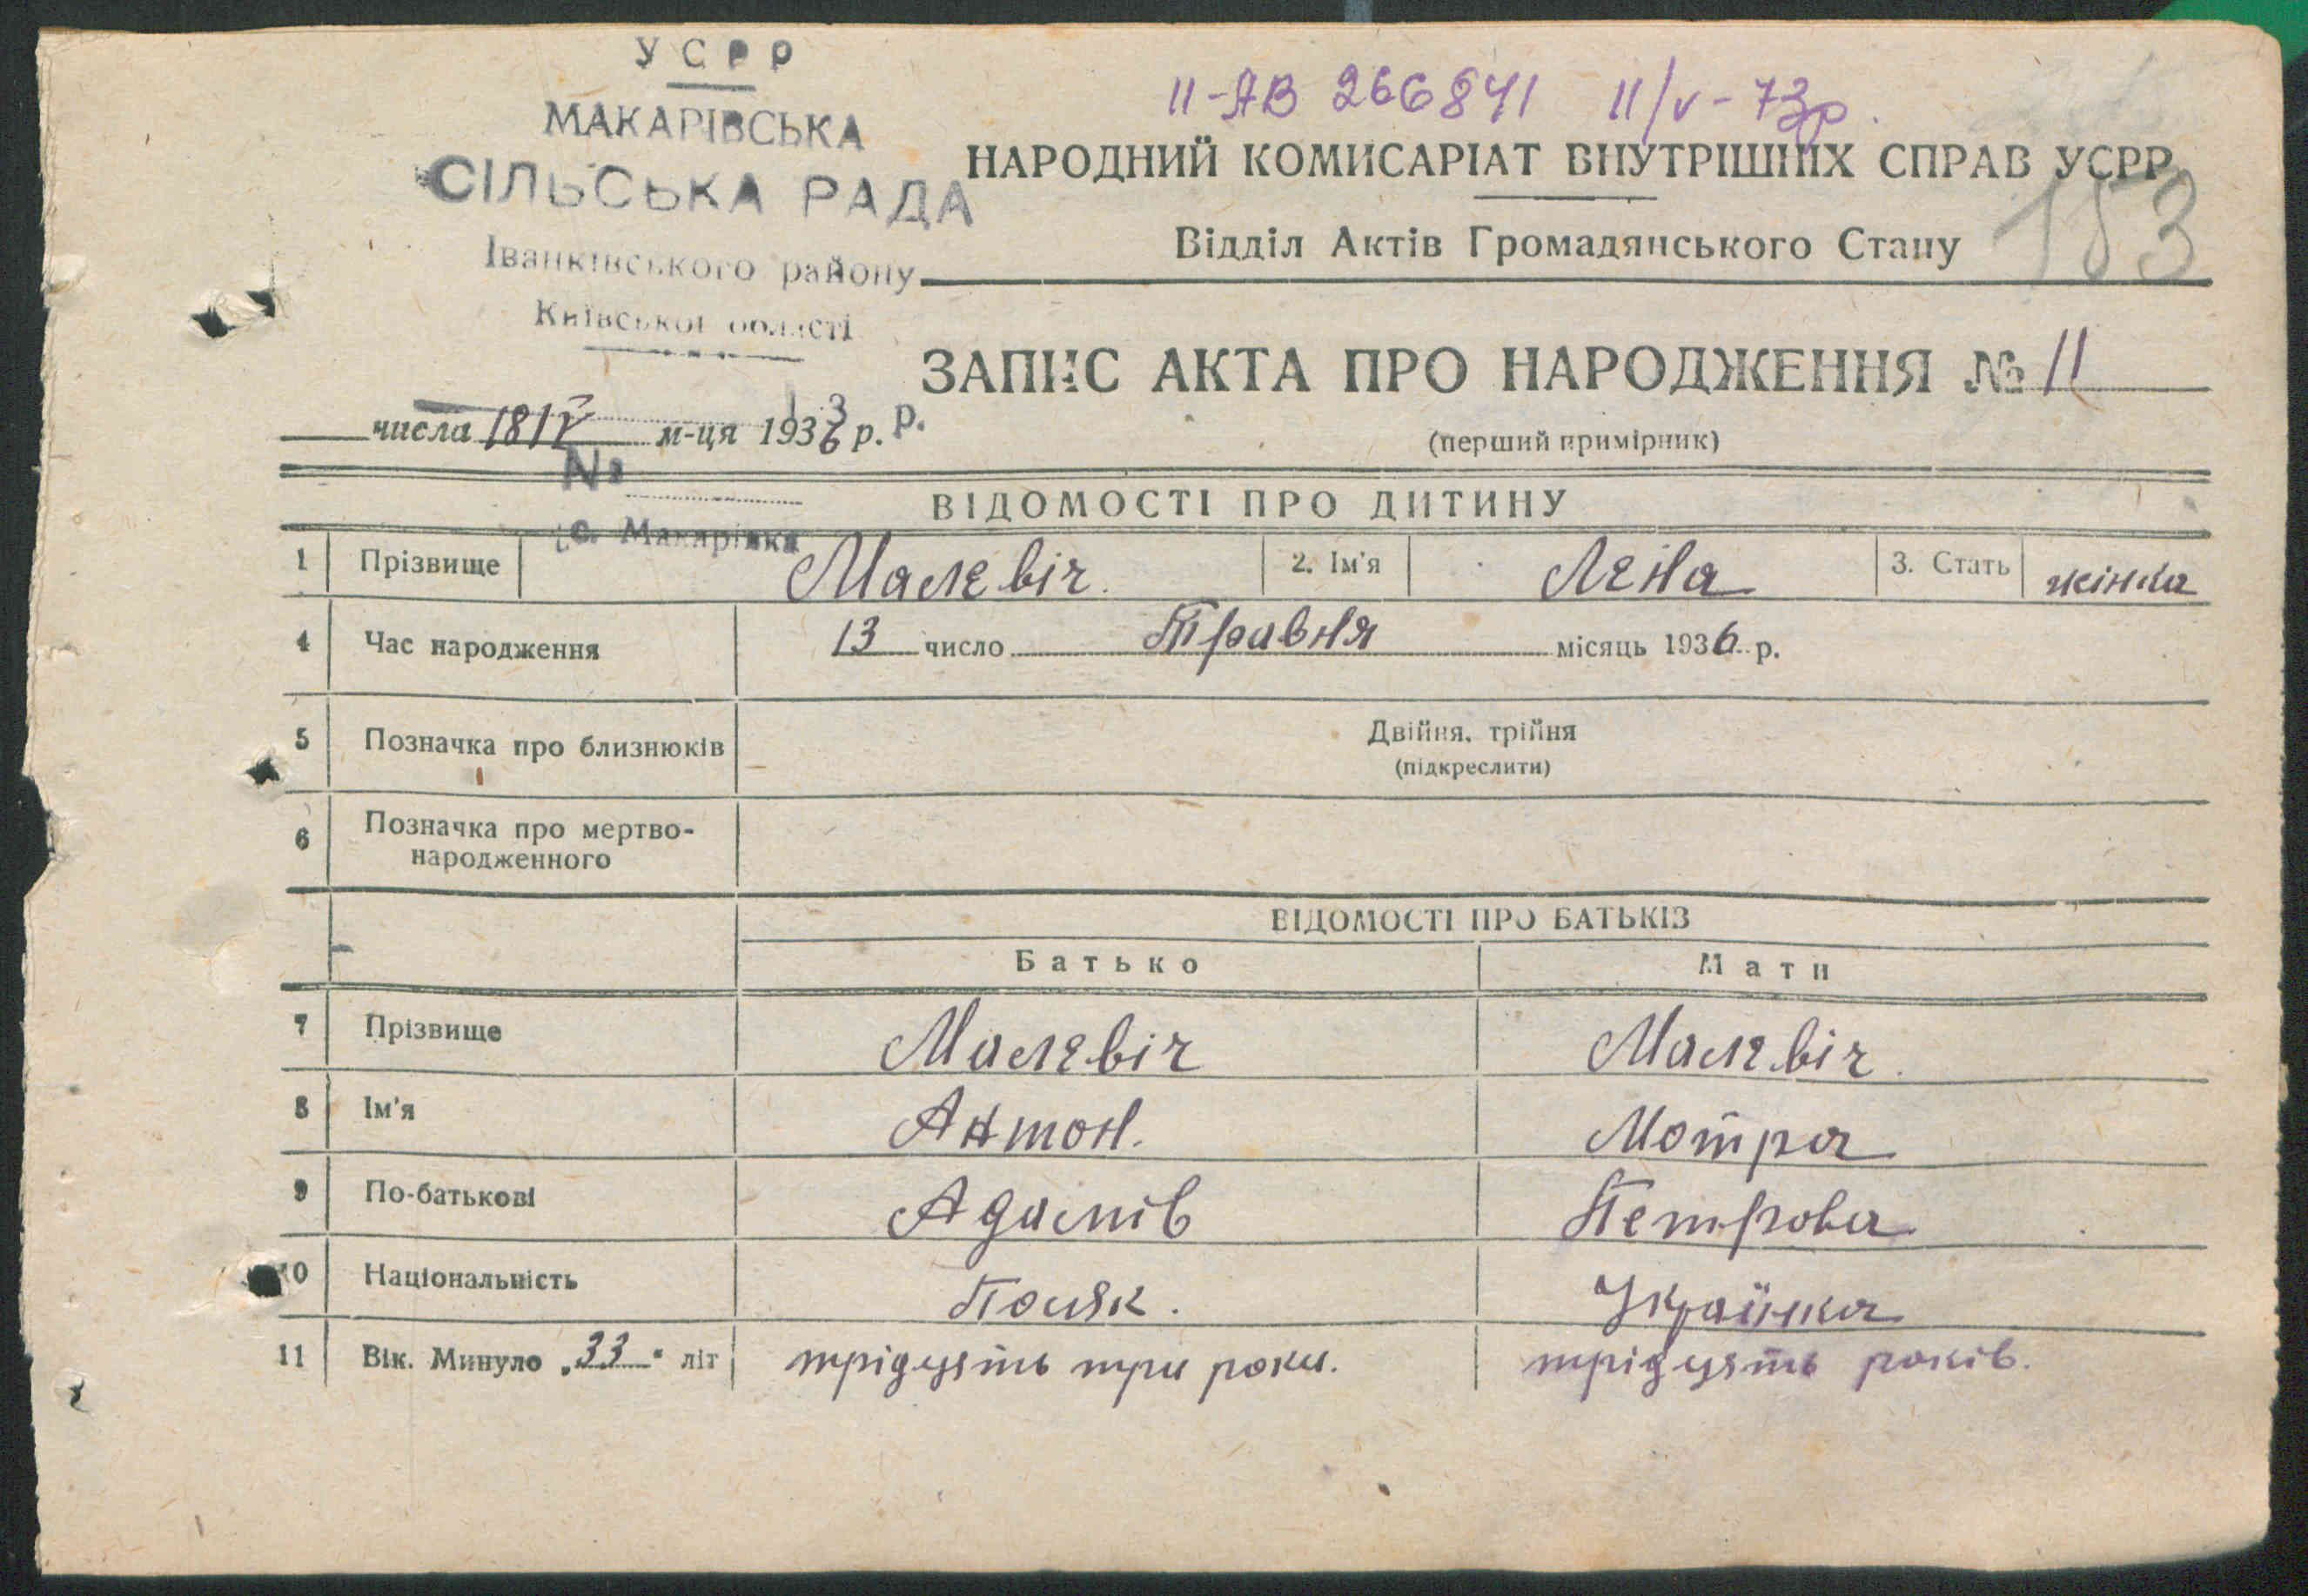 УСРР
МАКАРІВСЬКА
СІЛЬСЬКА РАДА
Іванківського району
Київської області
II-АВ 266841 11/V-73р.
НАРОДНИЙ КОМИСАРІАТ ВНУТРІШНІХ СПРАВ УСРР
Відділ Актів Громадянського Стану
153
ЗАПИС АКТА ПРО НАРОДЖЕННЯ № 11
(перший примірник)
числа 18/V м-ця 1936 р. р.
№
с. Макарівка
ВІДОМОСТІ ПРО ДИТИНУ
1 Прізвище Малевіч. 2. Ім'я Лєна 3. Стать жінка
4 Час народження 13 число Травня місяць 1936 р.
5 Позначка про близнюків Двійня, трійня
(підкреслити)
6 Позначка про мертво-
народженного
ВІДОМОСТІ ПРО БАТЬКІВ
Батько Мати
7 Прізвище Малевіч Малевіч.
8 Ім'я Антон. Мотря
9 По-батькові Адамів Петрова
10 Національність Поляк. Українка
11 Вік. Минуло „33“ літ трідцять три роки. трідцять років.